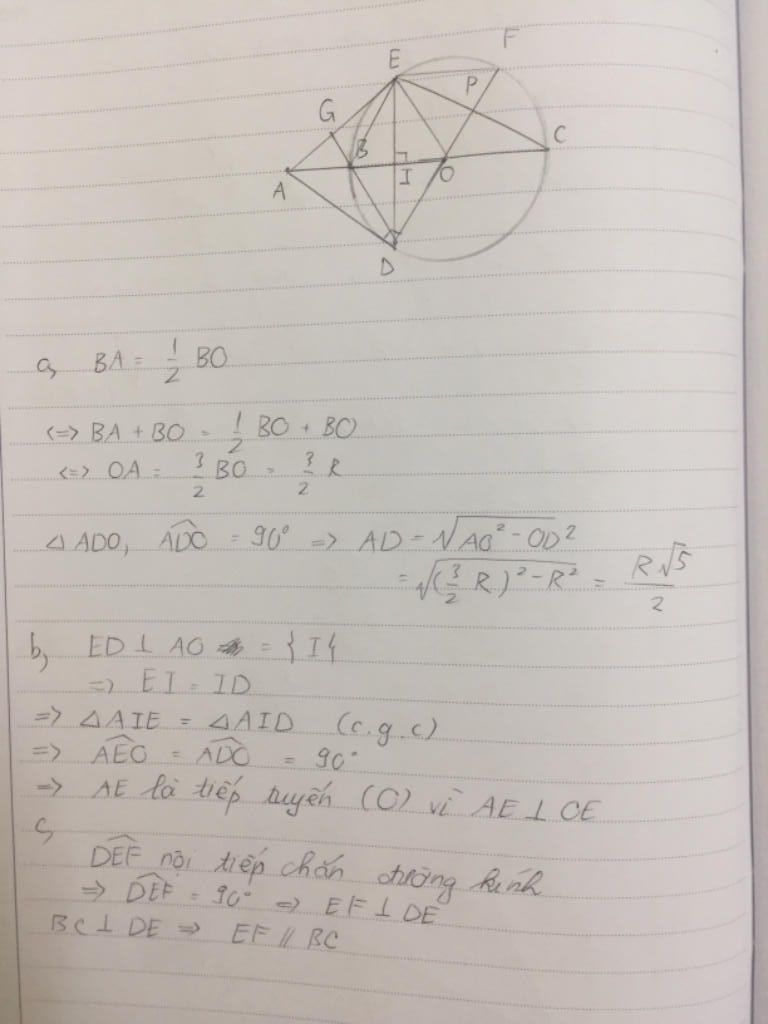 F
E
P
G
B
C
A
I
O
D
a, BA = 1/2 BO
<=> BA + BO = 1/2 BO + BO
<=> OA = 3/2 BO = 3/2 R
△ ADO, ADO = 90° => AD = √AO² - OD²
= √(3/2 R)² - R² = R√5/2
b, ED ⊥ AO = { I {
=> EI = ID
=> △AIE = △AID (c.g.c)
=> AEO = ADO = 90°
=> AE là tiếp tuyến (O) vì AE ⊥ OE
c,
DEF nội tiếp chắn đường kính
=> DEF = 90° => EF ⊥ DE
BC ⊥ DE => EF // BC